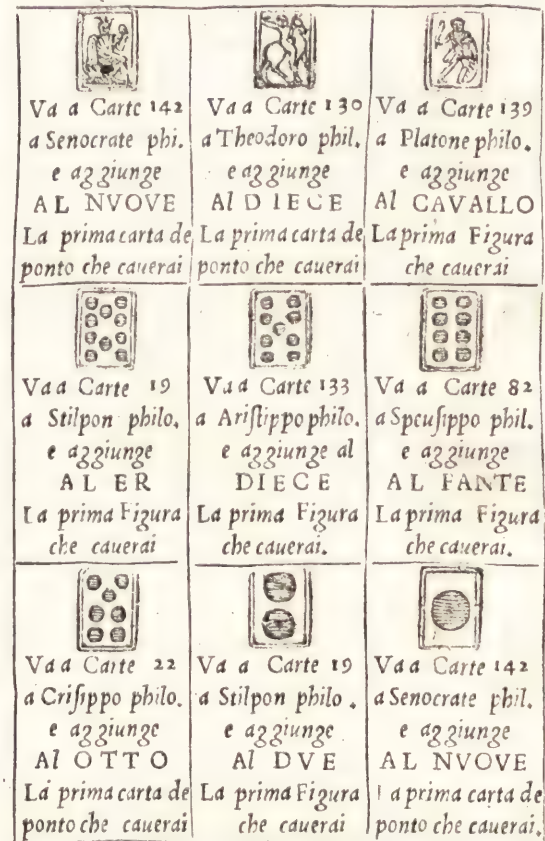 Va a Carte 142
a Senocrate phi.
e aggiunge
AL NVOVE
La prima carta de
ponto che cauerai
Va a Carte 130
a Theodoro phil.
e aggiunge
Al DIECE
La prima carta de
ponto che cauerai
Va a Carte 139
a Platone philo.
e aggiunge
Al CAVALLO
La prima Figura
che cauerai
Va a Carte 19
a Stilpon philo.
e aggiunge
AL ER
La prima Figura
che cauerai
Va a Carte 133
a Ariſtippo philo.
e aggiunge al
DIECE
La prima Figura
che cauerai.
Va a Carte 82
a Speuſippo phil.
e aggiunge
AL FANTE
La prima Figura
che cauerai.
Va a Carte 22
a Criſippo philo.
e aggiunge
Al OTTO
La prima carta de
ponto che cauerai
Va a Carte 19
a Stilpon philo.
e aggiunge
Al DVE
La prima Figura
che cauerai
Va a Carte 142
a Senocrate phil.
e aggiunge
AL NVOVE
La prima carta de
ponto che cauerai.